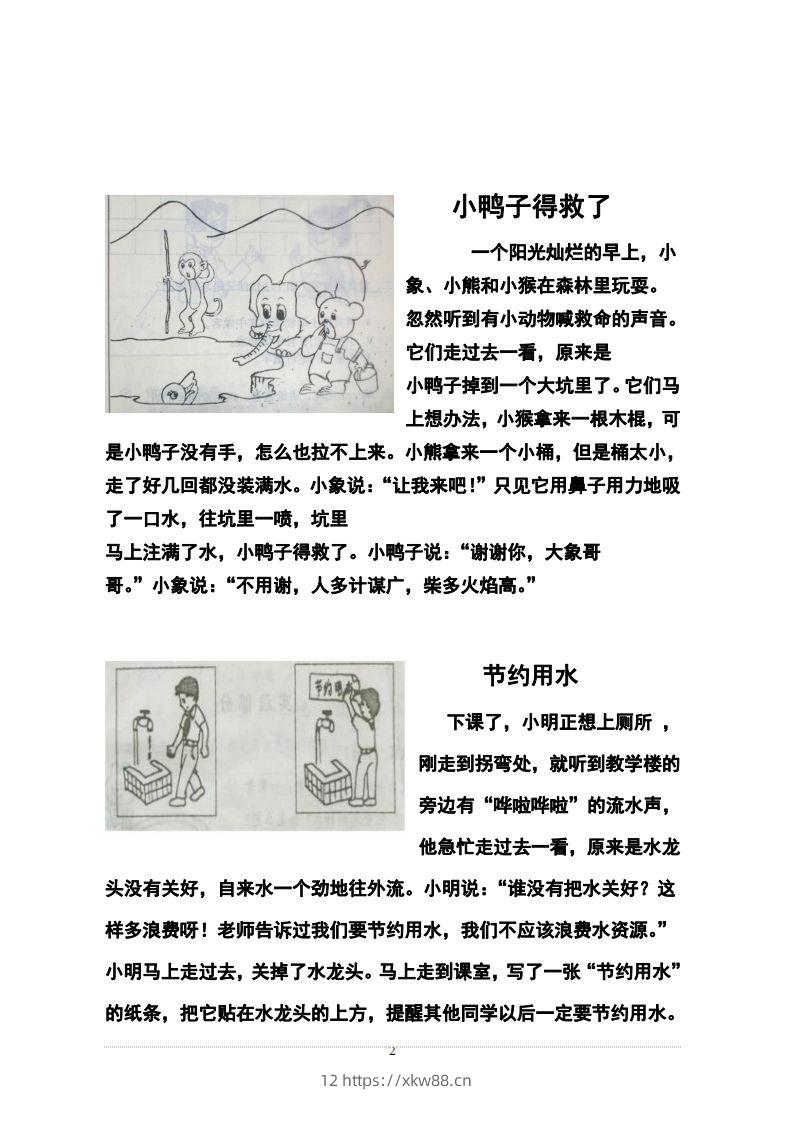 小鸭子得救了
一个阳光灿烂的早上，小
象、小熊和小猴在森林里玩耍。
忽然听到有小动物喊救命的声音。
它们走过去一看，原来是
小鸭子掉到一个大坑里了。它们马
上想办法，小猴拿来一根木棍，可
是小鸭子没有手，怎么也拉不上来。小熊拿来一个小桶，但是桶太小，
走了好几回都没装满水。小象说：“让我来吧！”只见它用鼻子用力地吸
了一口水，往坑里一喷，坑里
马上注满了水，小鸭子得救了。小鸭子说：“谢谢你，大象哥
哥。”小象说：“不用谢，人多计谋广，柴多火焰高。”
节约用水
节约用水
下课了，小明正想上厕所 ，
刚走到拐弯处，就听到教学楼的
旁边有“哗啦哗啦”的流水声，
他急忙走过去一看，原来是水龙
头没有关好，自来水一个劲地往外流。小明说：“谁没有把水关好？这
样多浪费呀！老师告诉过我们要节约用水，我们不应该浪费水资源。”
小明马上走过去，关掉了水龙头。马上走到课室，写了一张“节约用水”
的纸条，把它贴在水龙头的上方，提醒其他同学以后一定要节约用水。
2
12 https://xkw88.cn